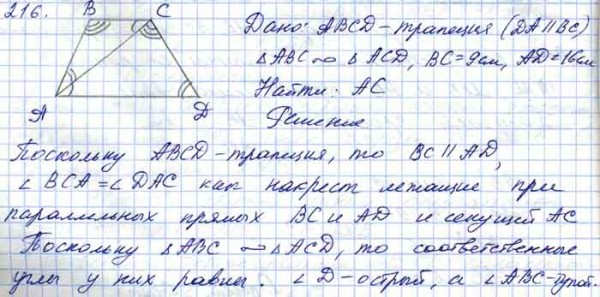 216.
B C
A D
Дано: ABCD-трапеция (DA∥BC)
△ABC ∾ △ACD, BC=9см, AD=16см
Найти: AC
Решение
Поскольку ABCD-трапеция, то BC∥AD,
∠BCA=∠DAC как накрест лежащие при
параллельных прямых BC и AD и секущей AC
Поскольку △ABC ∾ △ACD, то соответственные
углы у них равны. ∠D-острый, а ∠ABC-тупой.